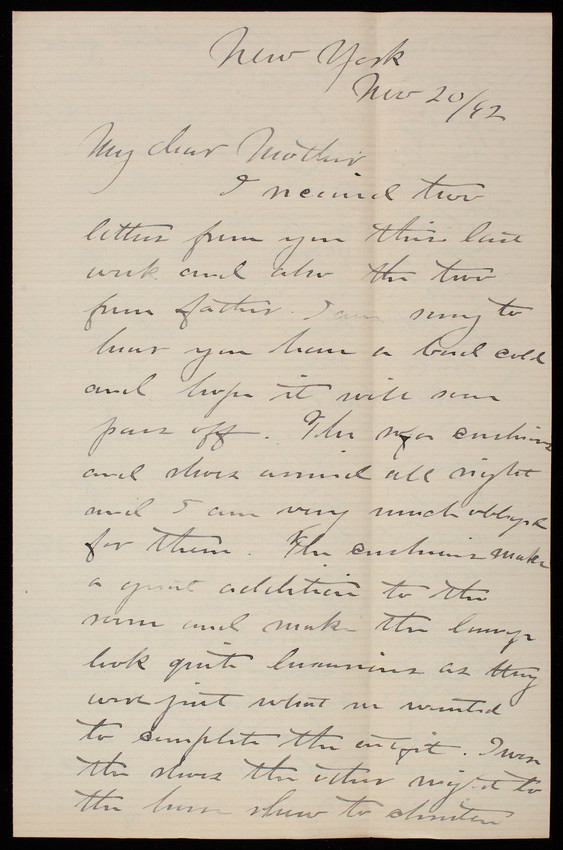 New York
Nov 20/92
My dear Mother
I received two
letters from you this last
week and also the two
from father. I am sorry to
hear you have a bad cold
and hope it will soon
pass off. The sofa cushions
and shoes arrived all right
and I am very much obliged
for them. The cushions make
a great addition to the
room and make the lounge
look quite luxurious as they
were just what we wanted
to complete the outfit. I wore
the shoes the other night to
the horse show to christen